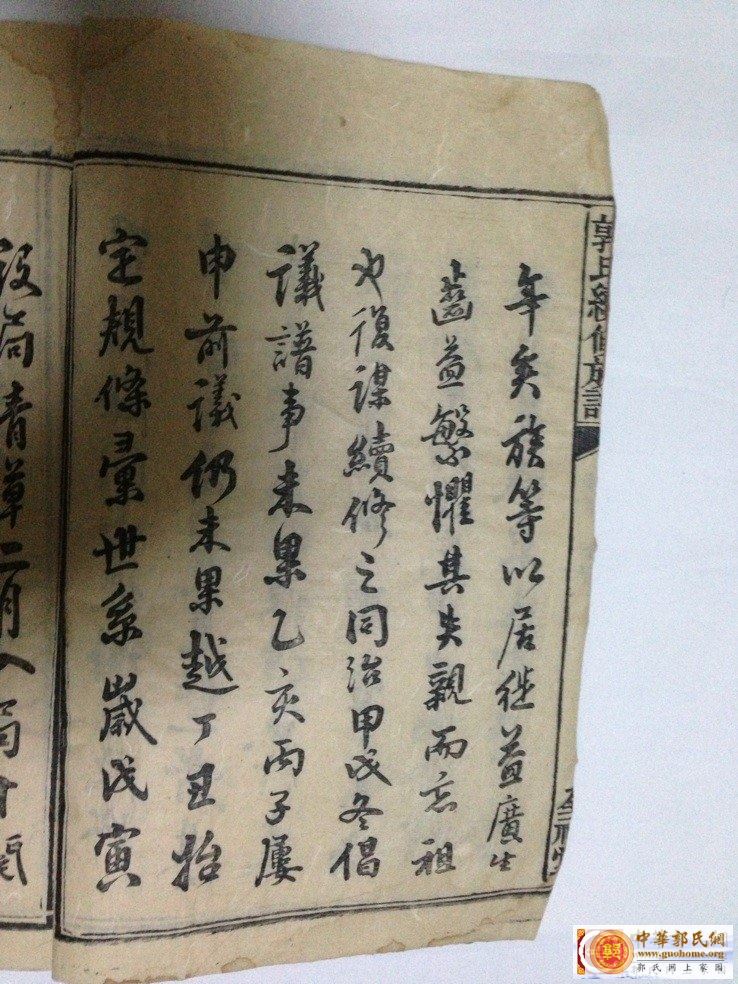 郭氏續修族譜
年矣族等以居徙益廣生
齒益繁懼其失親而忘祖
也復謀續修之同治甲戌冬倡
議譜事未果乙亥丙子屢
申前議仍未果越丁丑始
定規條彙世系歲戊寅
設局青草二月入局
中華郭氏網
www.guohome.org
郭氏网上家园